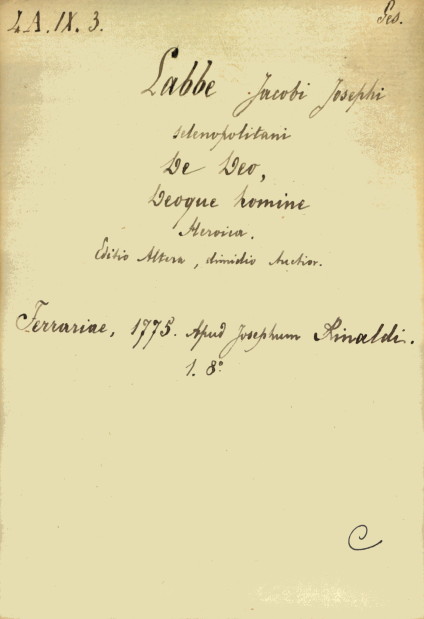 4.A.IX.3. Ges.
Labbe Jacobi Josephi
selenopolitani
De Deo,
Deoque homine
Heroica.
Editio Altera, dimidio Auctior.
Ferrariae, 1775. Apud Josephum Rinaldi.
1. 8°
C